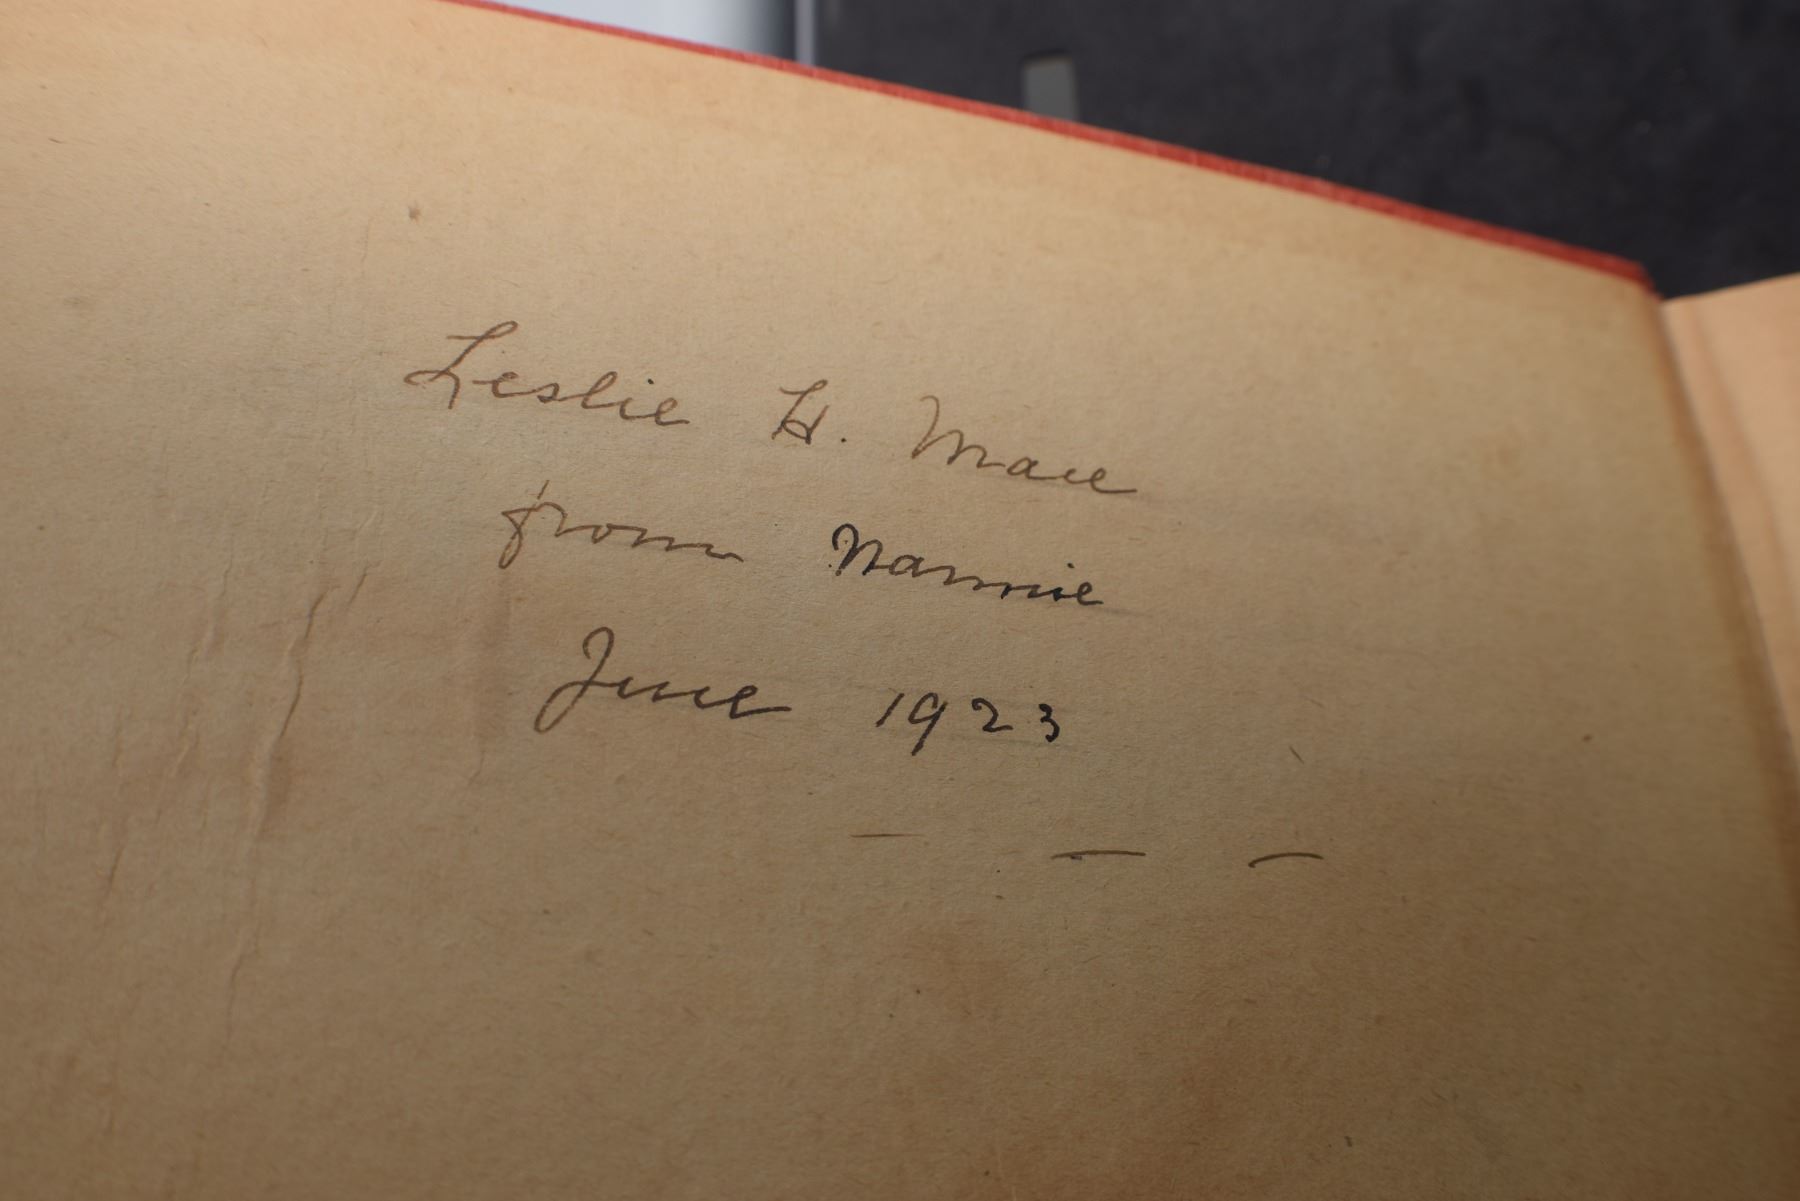 Leslie H. Mace
from Nannie
June 1923